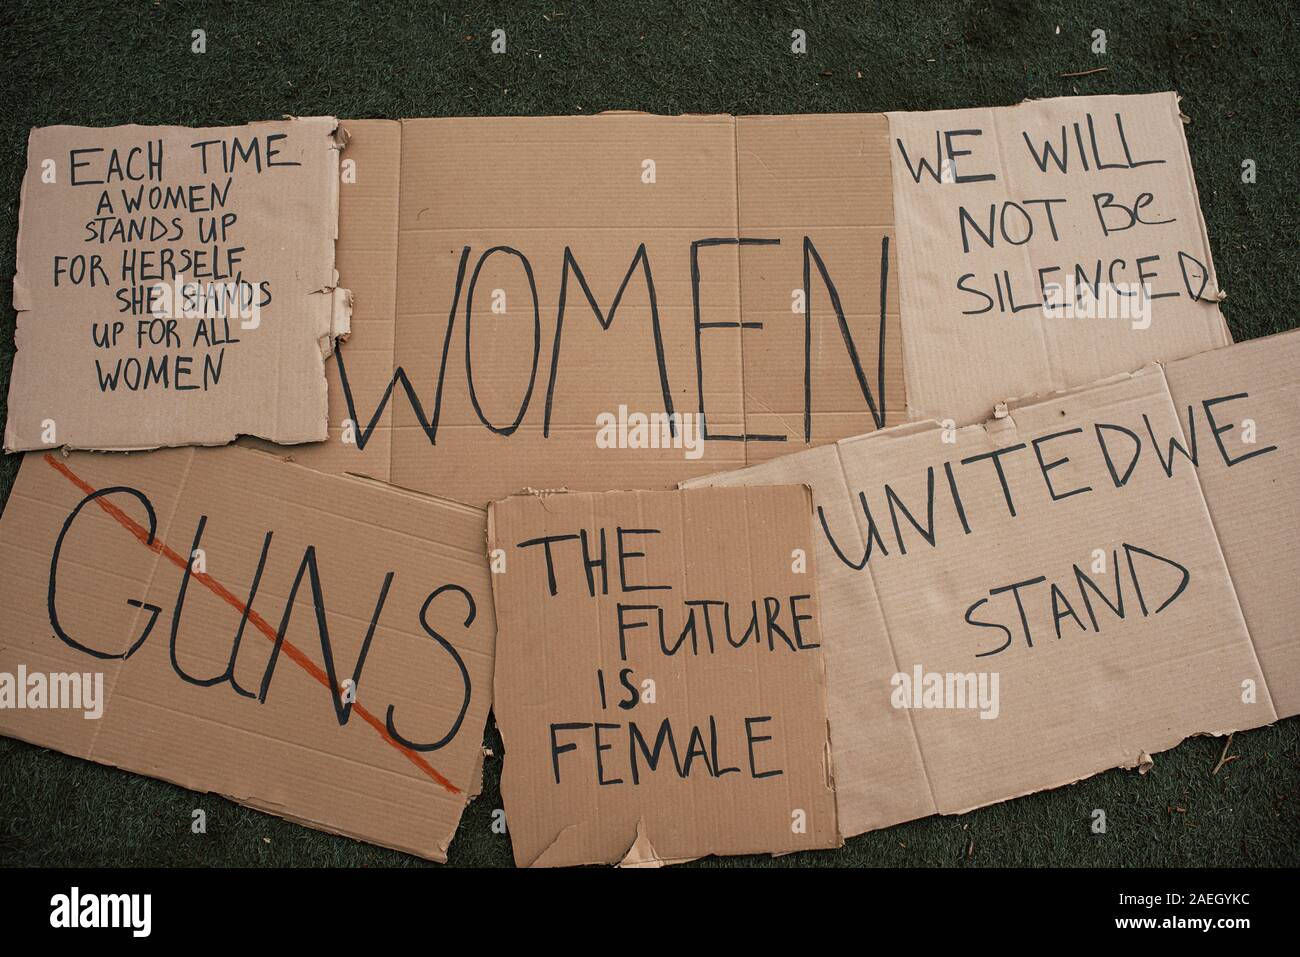 EACH TIME
A WOMEN
STANDS UP
FOR HERSELF,
SHE STANDS
UP FOR ALL
WOMEN
WOMEN
WE WILL
NOT Be
SILENCED
GUNS
THE
FUTURE
IS
FEMALE
UNITED WE
STAND
alamy
alamy
a
alamy stock photo
Image ID: 2AEGYKC
www.alamy.com